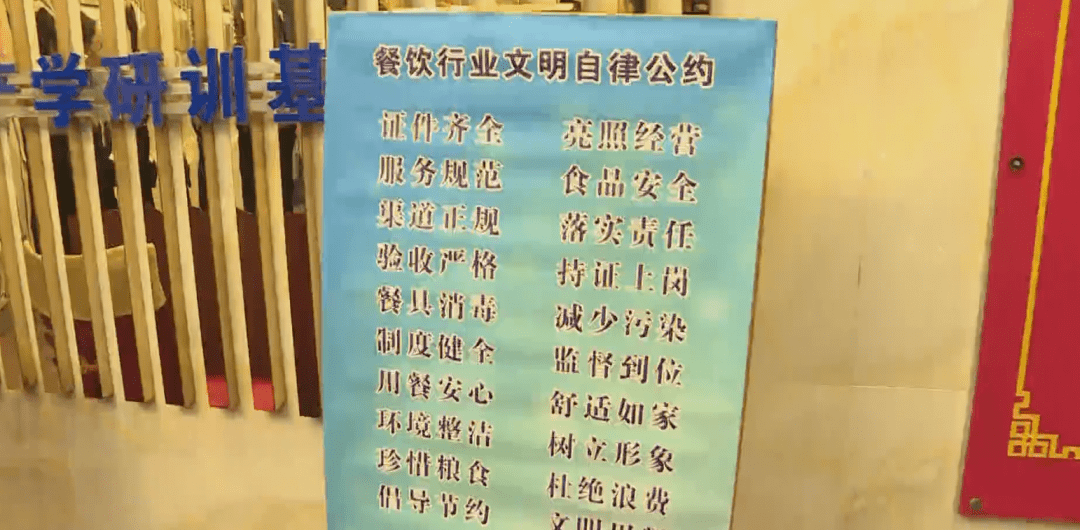 学研训基
餐饮行业文明自律公约
证件齐全 亮照经营
服务规范 食品安全
渠道正规 落实责任
验收严格 持证上岗
餐具消毒 减少污染
制度健全 监督到位
用餐安心 舒适如家
环境整洁 树立形象
珍惜粮食 杜绝浪费
倡导节约 文明用